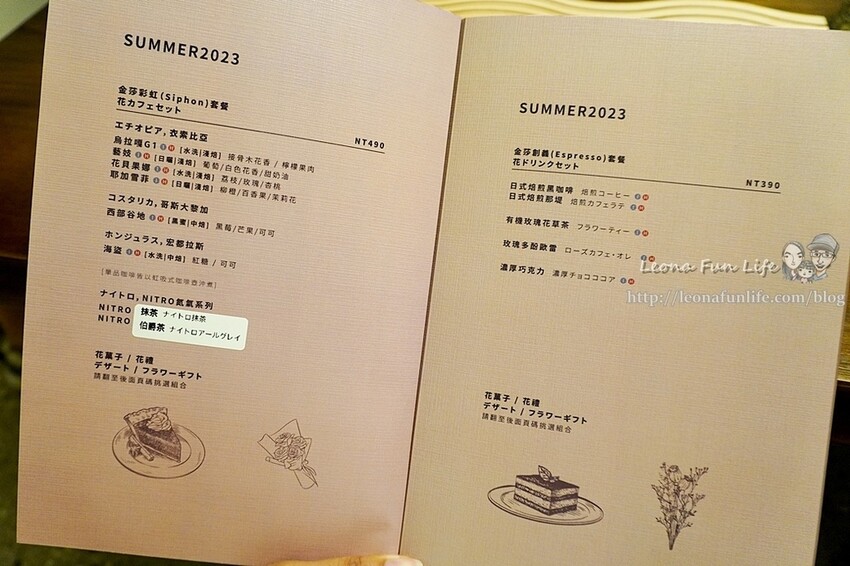 SUMMER2023
金莎彩虹(Siphon)套餐
花カフェセット
NT490
エチオピア, 衣索比亞
烏拉嘎G1 I H [水洗|淺焙] 接骨木花香 / 檸檬果肉
藝妓 I H [日曬|淺焙] 葡萄/白色花香/甜奶油
花貝果娜 I H [水洗|淺焙] 荔枝/玫瑰/杏桃
耶加雪菲 I H [日曬|淺焙] 柳橙/百香果/茉莉花
コスタリカ, 哥斯大黎加
西部谷地 I H [黑蜜|中焙] 黑莓/芒果/可可
ホンジュラス, 宏都拉斯
海盜 I H [水洗|中焙] 紅糖 / 可可
[單品咖啡皆以虹吸式咖啡壺沖煮]
ナイトロ, NITRO氮氣系列
NITRO 抹茶 ナイトロ抹茶
NITRO 伯爵茶 ナイトロアールグレイ
花菓子 / 花禮
デザート / フラワーギフト
請翻至後面頁碼挑選組合
SUMMER2023
金莎創義(Espresso)套餐
花ドリンクセット
NT390
日式焙煎黑咖啡 焙煎コーヒー I H
日式焙煎那堤 焙煎カフェラテ I H
有機玫瑰花草茶 フラワーティー I H
玫瑰多酚歐蕾 ローズカフェ・オレ I H
濃厚巧克力 濃厚チョコココア I H
花菓子 / 花禮
デザート / フラワーギフト
請翻至後面頁碼挑選組合
Leona Fun Life
http://leonafunlife.com/blog